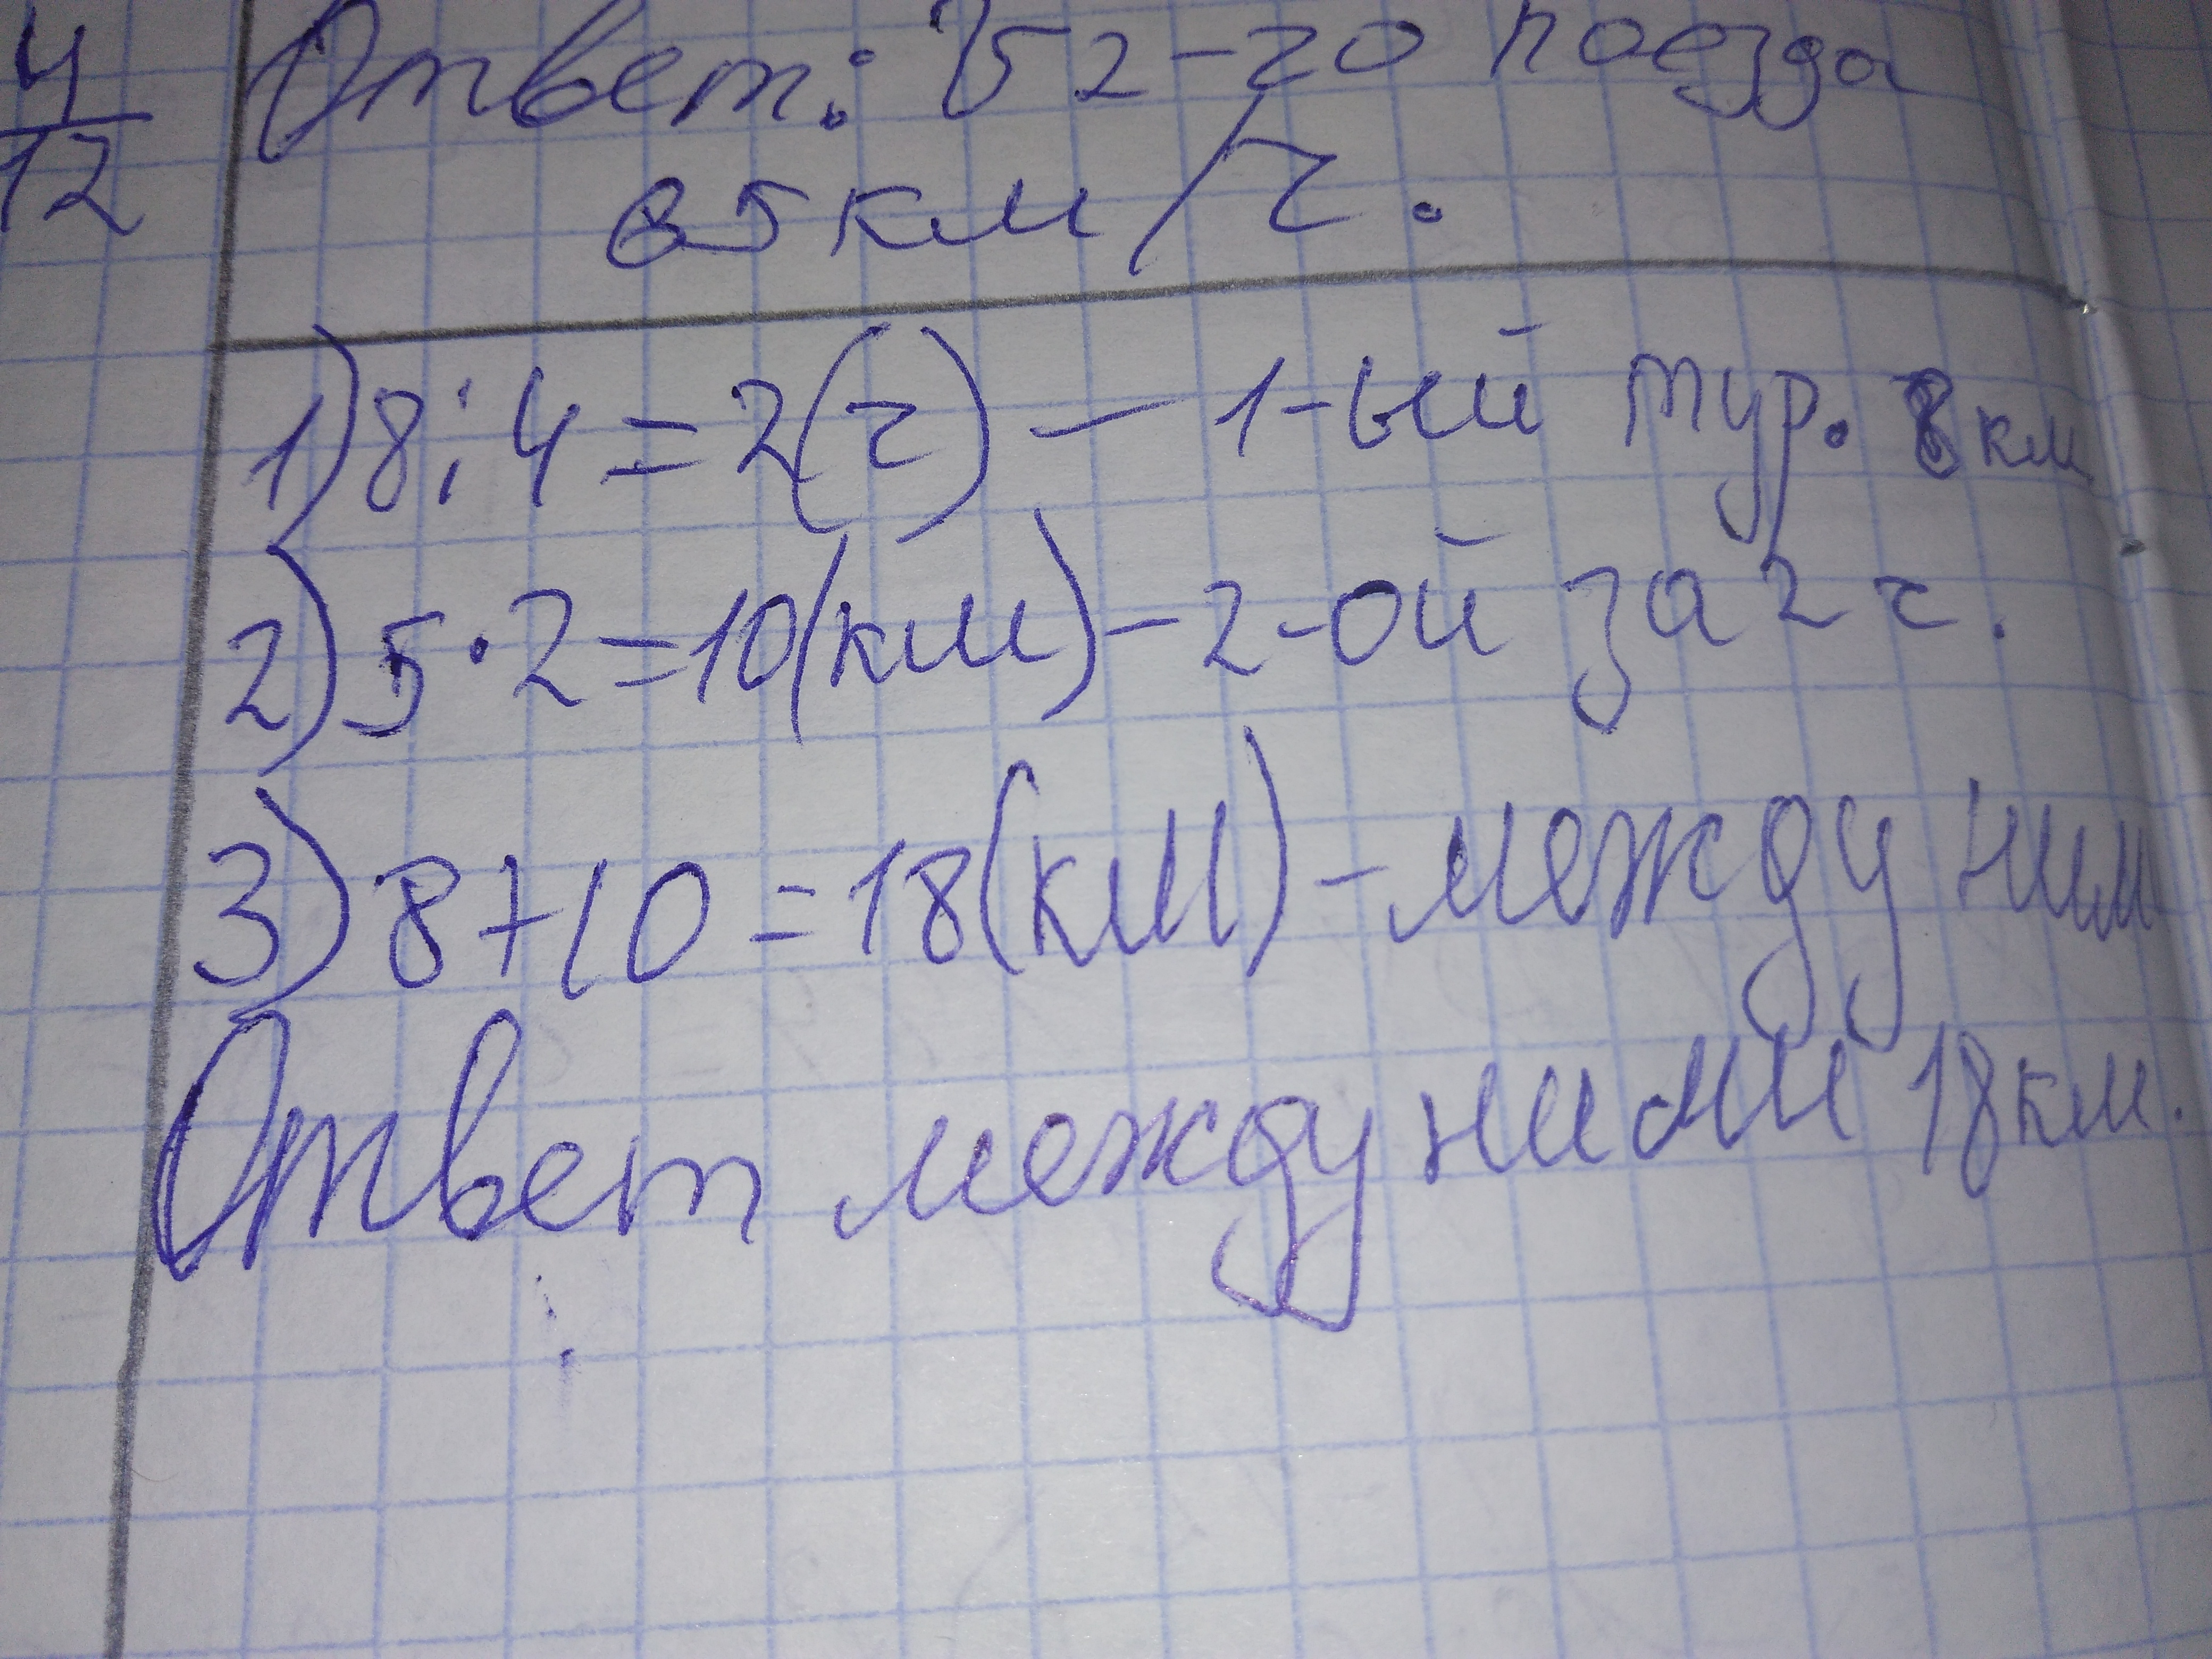 4
12
Ответ: V 2-го поезда
85 км/ч.
1) 8:4=2(ч) – 1-ый тур. 8 км
2) 5·2=10(км) – 2-ой за 2 ч.
3) 8+10=18(км) – между ним
Ответ: между ними 18 км.